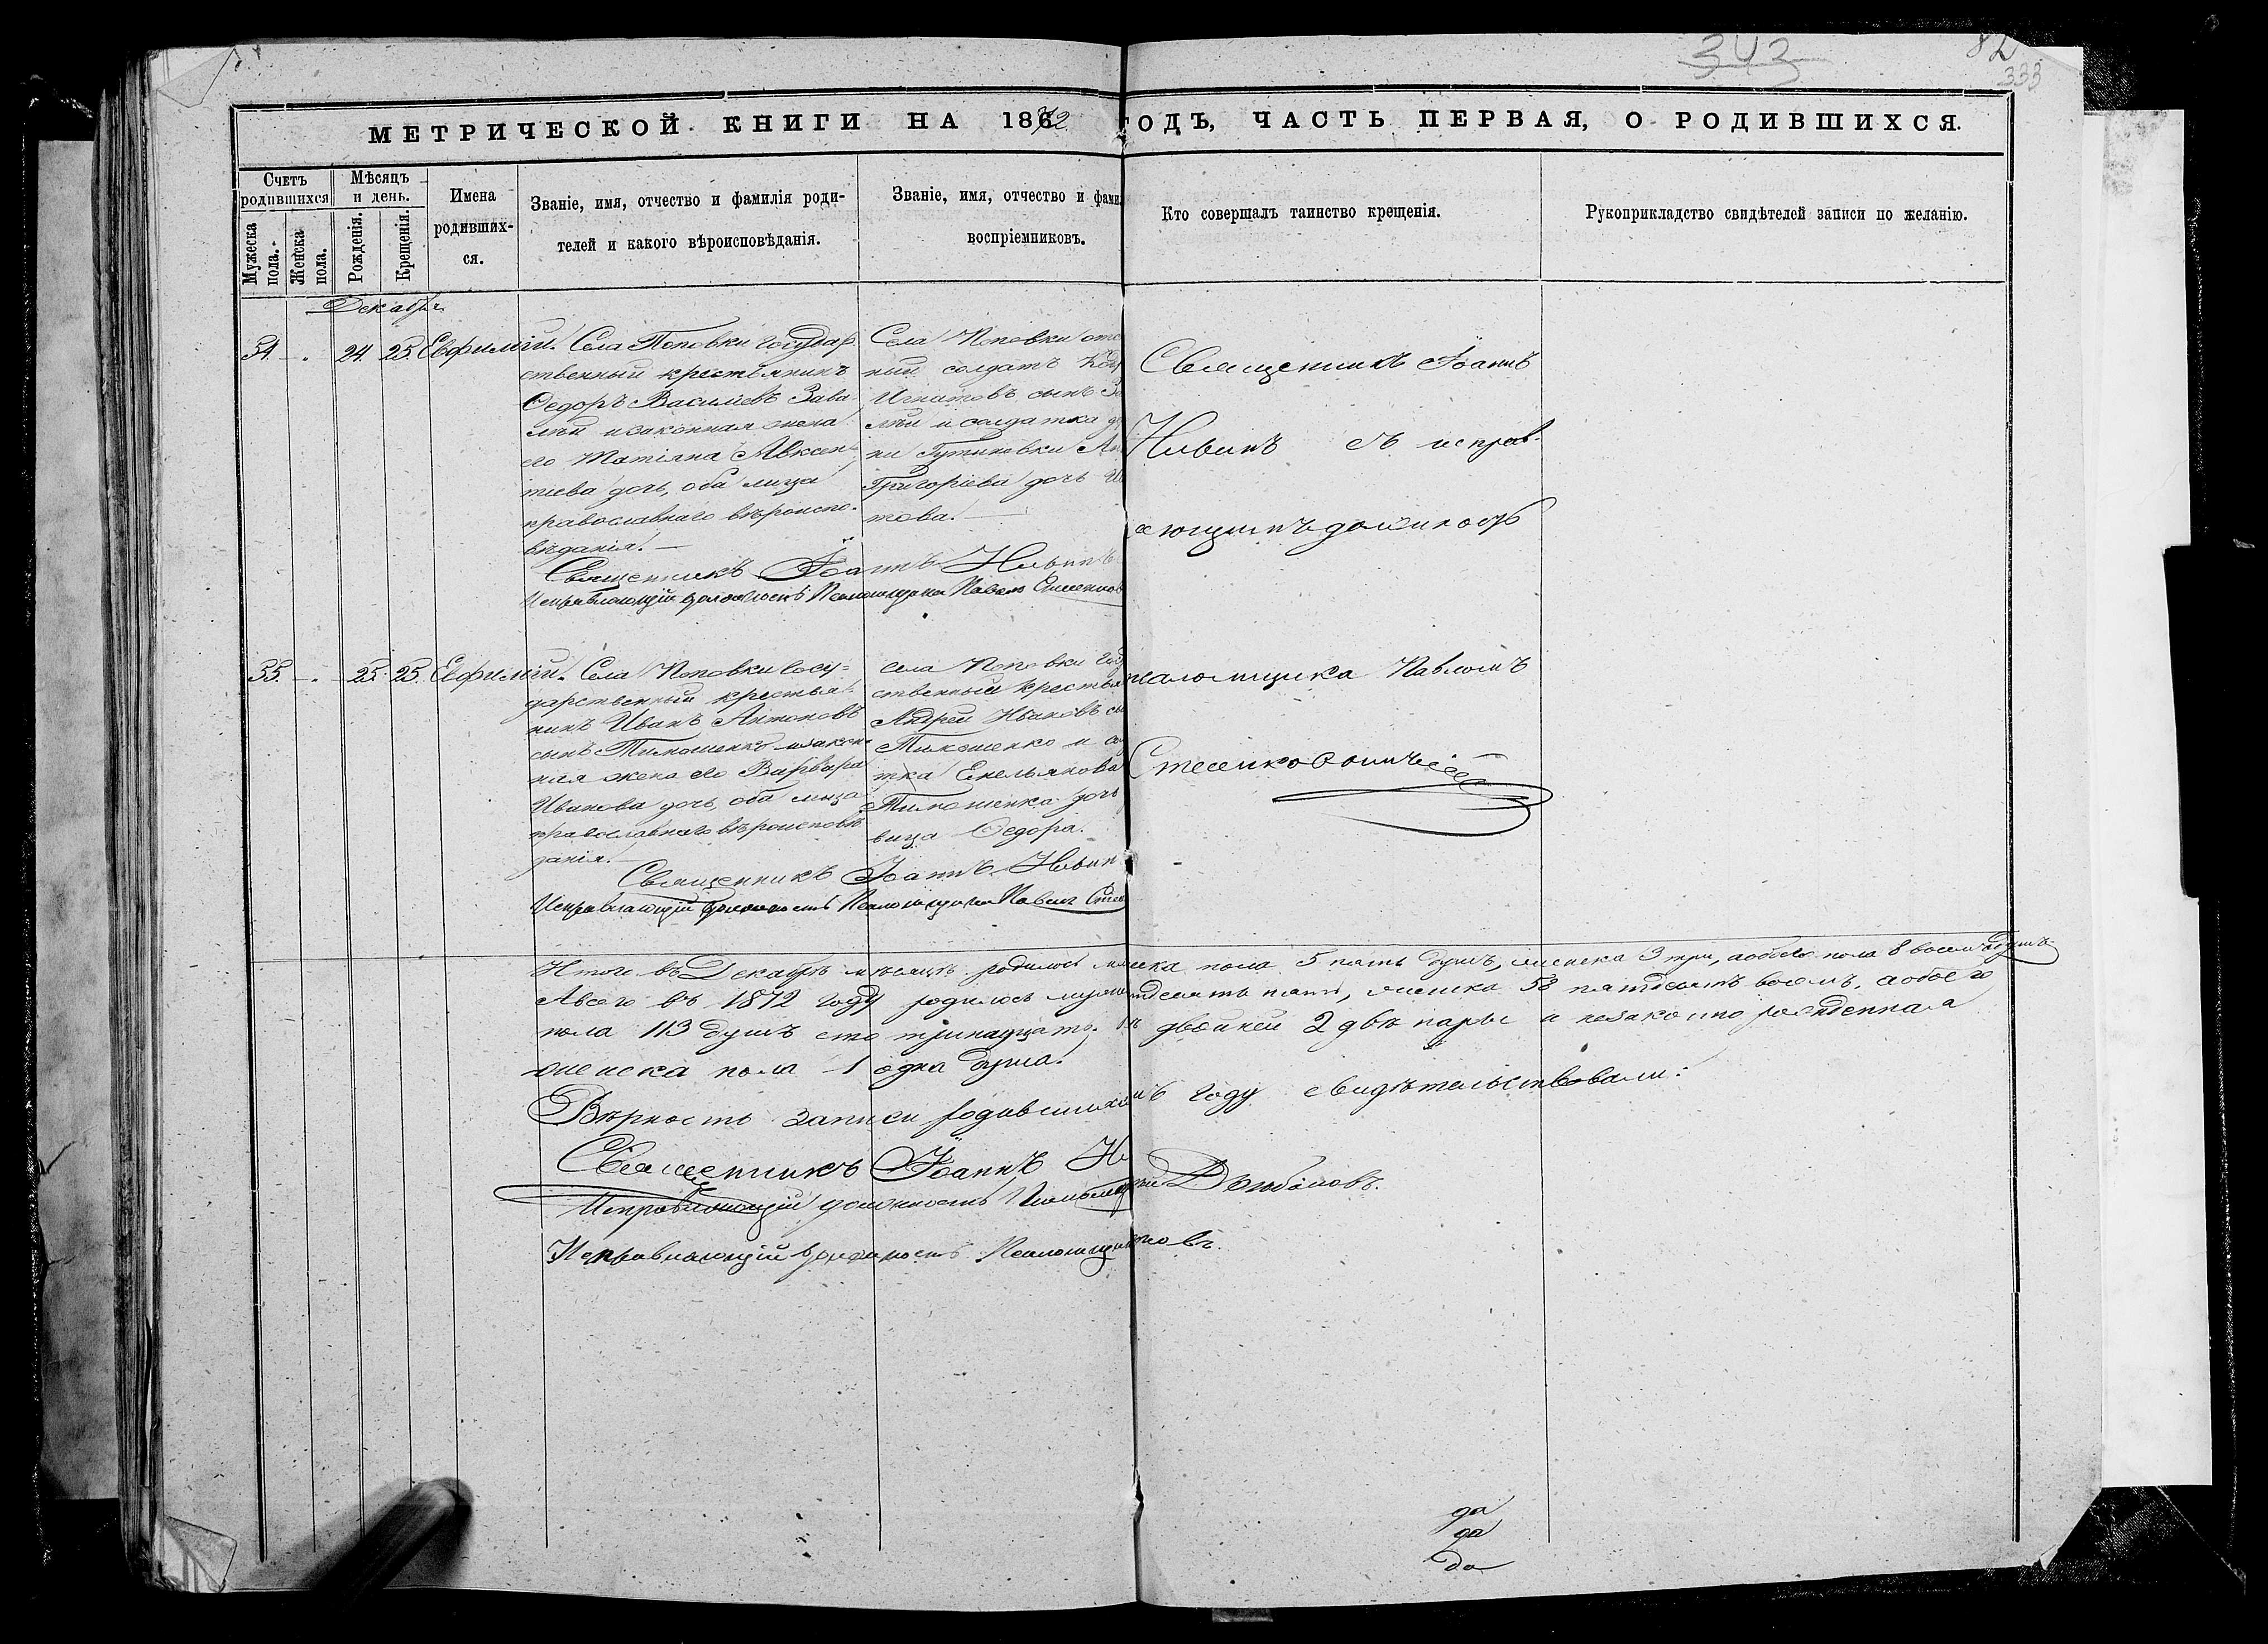 343
82
333
МЕТРИЧЕСКОЙ КНИГИ НА 1872 ГОДЪ, ЧАСТЬ ПЕРВАЯ, О РОДИВШИХСЯ.
Счетъ родившихся
Мужеска пола.
Женска пола.
Мѣсяцъ и день.
Рожденія.
Крещенія.
Имена родившихся.
Званіе, имя, отчество и фамилія родителей и какого вѣроисповѣданія.
Званіе, имя, отчество и фами
воспріемниковъ.
Кто совершалъ таинство крещенія.
Рукоприкладство свидѣтелей записи по желанію.
Декабрь
54. 24. 25. Евфимій.
Села Поповки государ
ственный крестьянинъ
Федоръ Василіевъ Зава
лый и законная жена
его Татіяна Авксен
тіева дочь, оба лица
православнаго вѣроиспо
вѣданія.
Села Поповки отс
ный солдатъ
Игнатовъ сынъ За
лый и солдатка де
ни Гутниковки
Григоріева дочь
това.
Священникъ Іоаннъ
Исправляющій должность Псаломщика Павелъ
Священникъ Іоаннъ
съ исправ
ляющимъ должность
псаломщика Павломъ
55. 25. 25. Евфимій.
Села Поповки Госу
дарственный крестья
нинъ Иванъ Антоновъ
сынъ Тимошенко и закон
ная жена его Варвара
Иванова дочь, оба лица
православнаго вѣроисповѣ
данія.
села Поповки Госу
ственный крестья
Андрей Ивановъ сы
Тимошенко и
тка Емельянова
Тимошенка дочь
вица Федора.
Священникъ Іоаннъ
Исправляющій должность Псаломщика Павелъ
Итого въ Декабрѣ мѣсяцѣ родилось мужеска пола 5 пять душъ, женска 3 три, а обоего пола 8 восемь душъ
А всего въ 1872 году родилось муже
десять пять, женска 58 пятдесятъ восемь, а обоего
пола 113 душъ сто тринадцать. двойней 2 двѣ пары и незаконно рожденная
женска пола 1 одна душа.
Вѣрность записи родившихся
году свидѣтельствовали:
Священникъ Іоаннъ
Исправляющій должность
Исправляющій должность Псаломщика
да
да
да